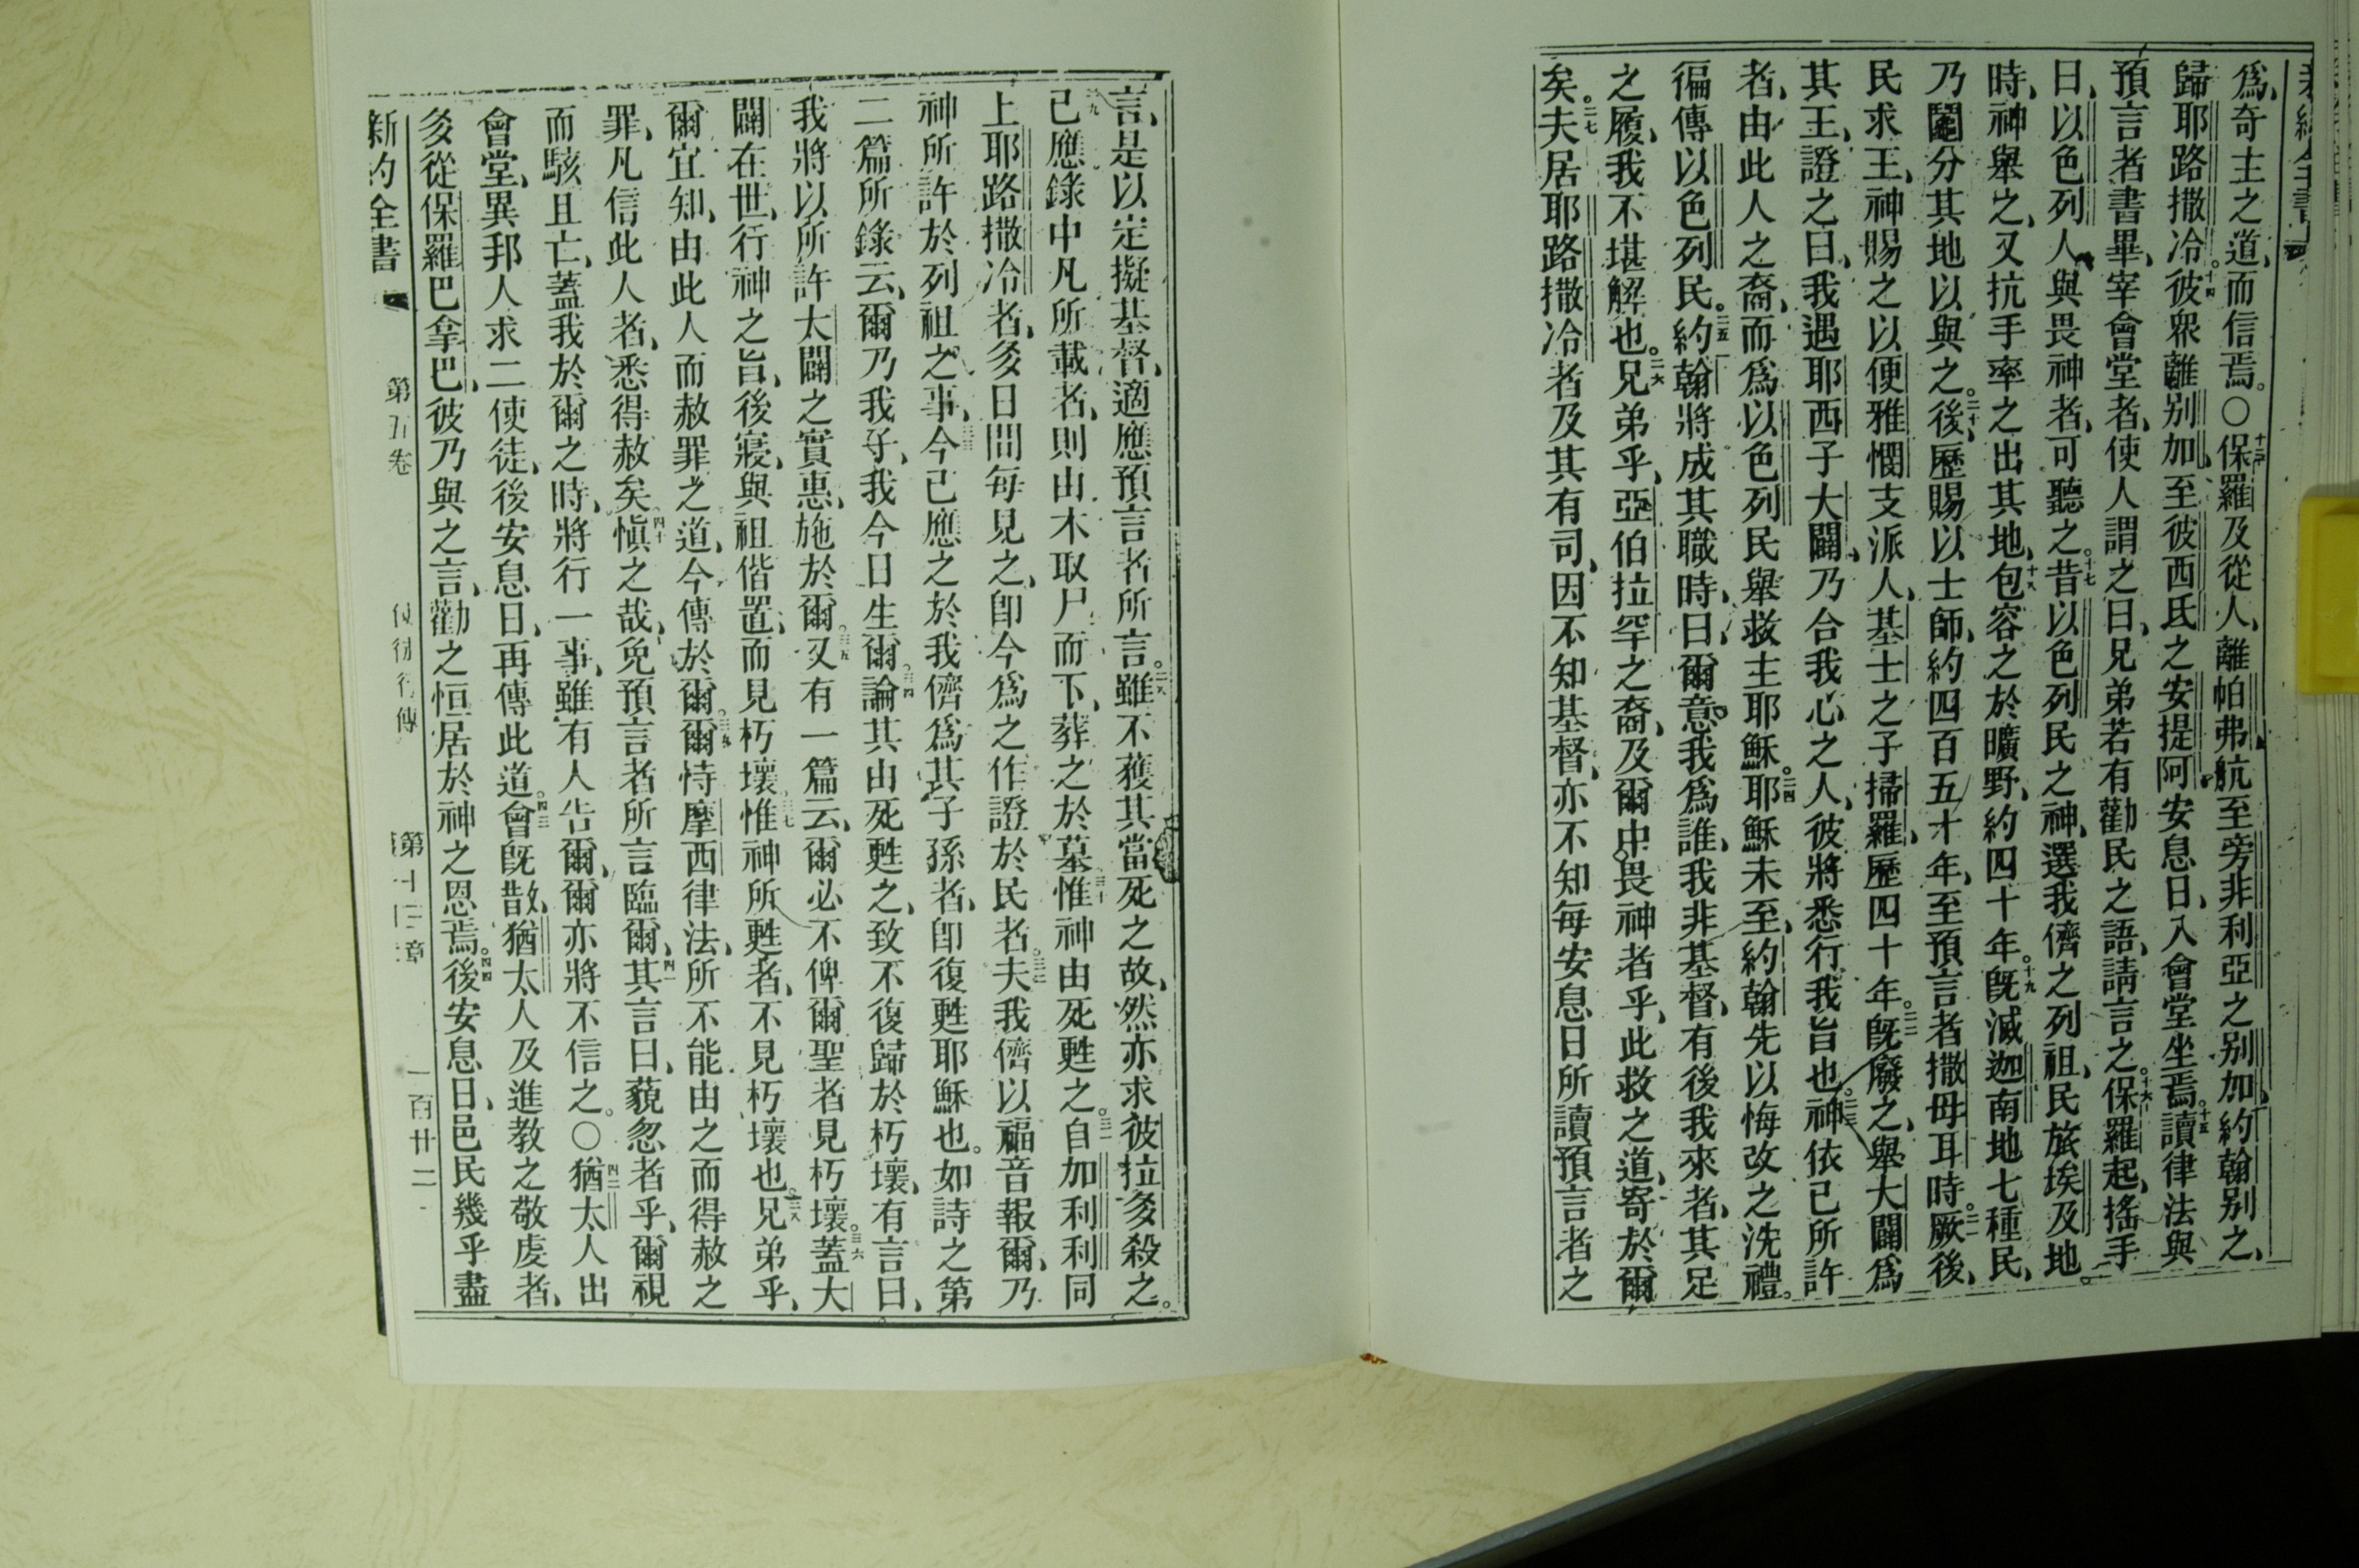 爲、奇主之道、而信焉。〇十三保羅及從人、離帕弗、航至旁非利亞之別加、約翰別之、
歸耶路撒冷。十四彼衆離別加、至彼西氐之安提阿、安息日、入會堂坐焉。十五讀律法與
預言者書畢、宰會堂者、使人謂之曰、兄弟若有勸民之語、請言之。十六保羅起、搖手
曰、以色列人與畏神者、可聽之。十七昔以色列民之神、選我儕之列祖、民旅埃及地。
時、神舉之、又抗手率之出其地、十八包容之於曠野、約四十年。十九旣滅迦南地七種民、
乃鬮分其地以與之。二十後、歷賜以士師、約四百五十年、至預言者撒母耳時。二一厥後、
民求王、神賜之以便雅憫支派人、基士之子掃羅、歷四十年。二二旣廢之、舉大闢爲
其王、證之曰、我遇耶西子大闢、乃合我心之人、彼將悉行我旨也。二三神依已所許
者、由此人之裔、而爲以色列民舉救主耶穌。二四耶穌未至、約翰先以悔改之洗禮。
徧傳以色列民。二五約翰將成其職時、曰、爾意我爲誰、我非基督、有後我來者、其足
之履、我不堪解也。二六兄弟乎、亞伯拉罕之裔、及爾中畏神者乎、此救之道、寄於爾
矣。二七夫居耶路撒冷者及其有司、因不知基督、亦不知每安息日所讀預言者之
言、是以定擬基督、適應預言者所言。二八雖不獲其當死之故、然亦求彼拉多殺之。
二九已應錄中凡所載者、則由木取尸而下、葬之於墓。三十惟神由死甦之。三一自加利利同
上耶路撒冷者、多日間每見之、卽今爲之作證於民者。三二夫我儕以福音報爾、乃
神所許於列祖之事、三三今已應之於我儕爲其子孫者、卽復甦耶穌也。如詩之第
二篇所錄云、爾乃我子、我今日生爾。三四論其由死甦之、致不復歸於朽壞、有言曰、
我將以所許大闢之實惠、施於爾。三五又有一篇云、爾必不俾爾聖者見朽壞。三六蓋大
闢在世、行神之旨、後寢、與祖偕置、而見朽壞。三七惟神所甦者、不見朽壞也。三八兄弟乎、
爾宜知、由此人而赦罪之道、今傳於爾。三九爾恃摩西律法、所不能由之而得赦之
罪、凡信此人者、悉得赦矣。四十愼之哉、免預言者所言臨爾、四一其言曰、藐忽者乎、爾視
而駭且亡、蓋我於爾之時、將行一事、雖有人告爾、爾亦將不信之。〇四二猶太人出
會堂、異邦人求二使徒、後安息日、再傳此道。四三會旣散、猶太人及進教之敬虔者、
多從保羅巴拿巴、彼乃與之言、勸之恒居於神之恩焉。四四後安息日、邑民幾乎盡
新約全書 第五卷 使徒行傳 第十三章 一百廿二